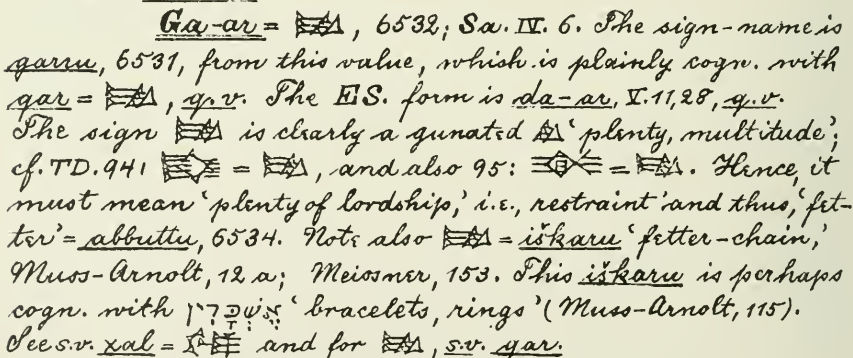 Ga-ar = , 6532; Sa. IV. 6. The sign-name is
garru, 6531, from this value, which is plainly cogn. with
gar = , q.v. The ES. form is da-ar, V. 11, 28, q.v.
The sign is clearly a gunated 'plenty, multitude';
cf. TD. 941 = , and also 95: = . Hence, it
must mean 'plenty of lordship,' i.e., restraint' and thus, 'fet-
ter' = abbuttu, 6534. Note also = iškaru 'fetter-chain,'
Muss-Arnolt, 12 a; Meissner, 153. This iškaru is perhaps
cogn. with 'bracelets, rings' (Muss-Arnolt, 115).
See s.v. xal = and for , s.v. gar.